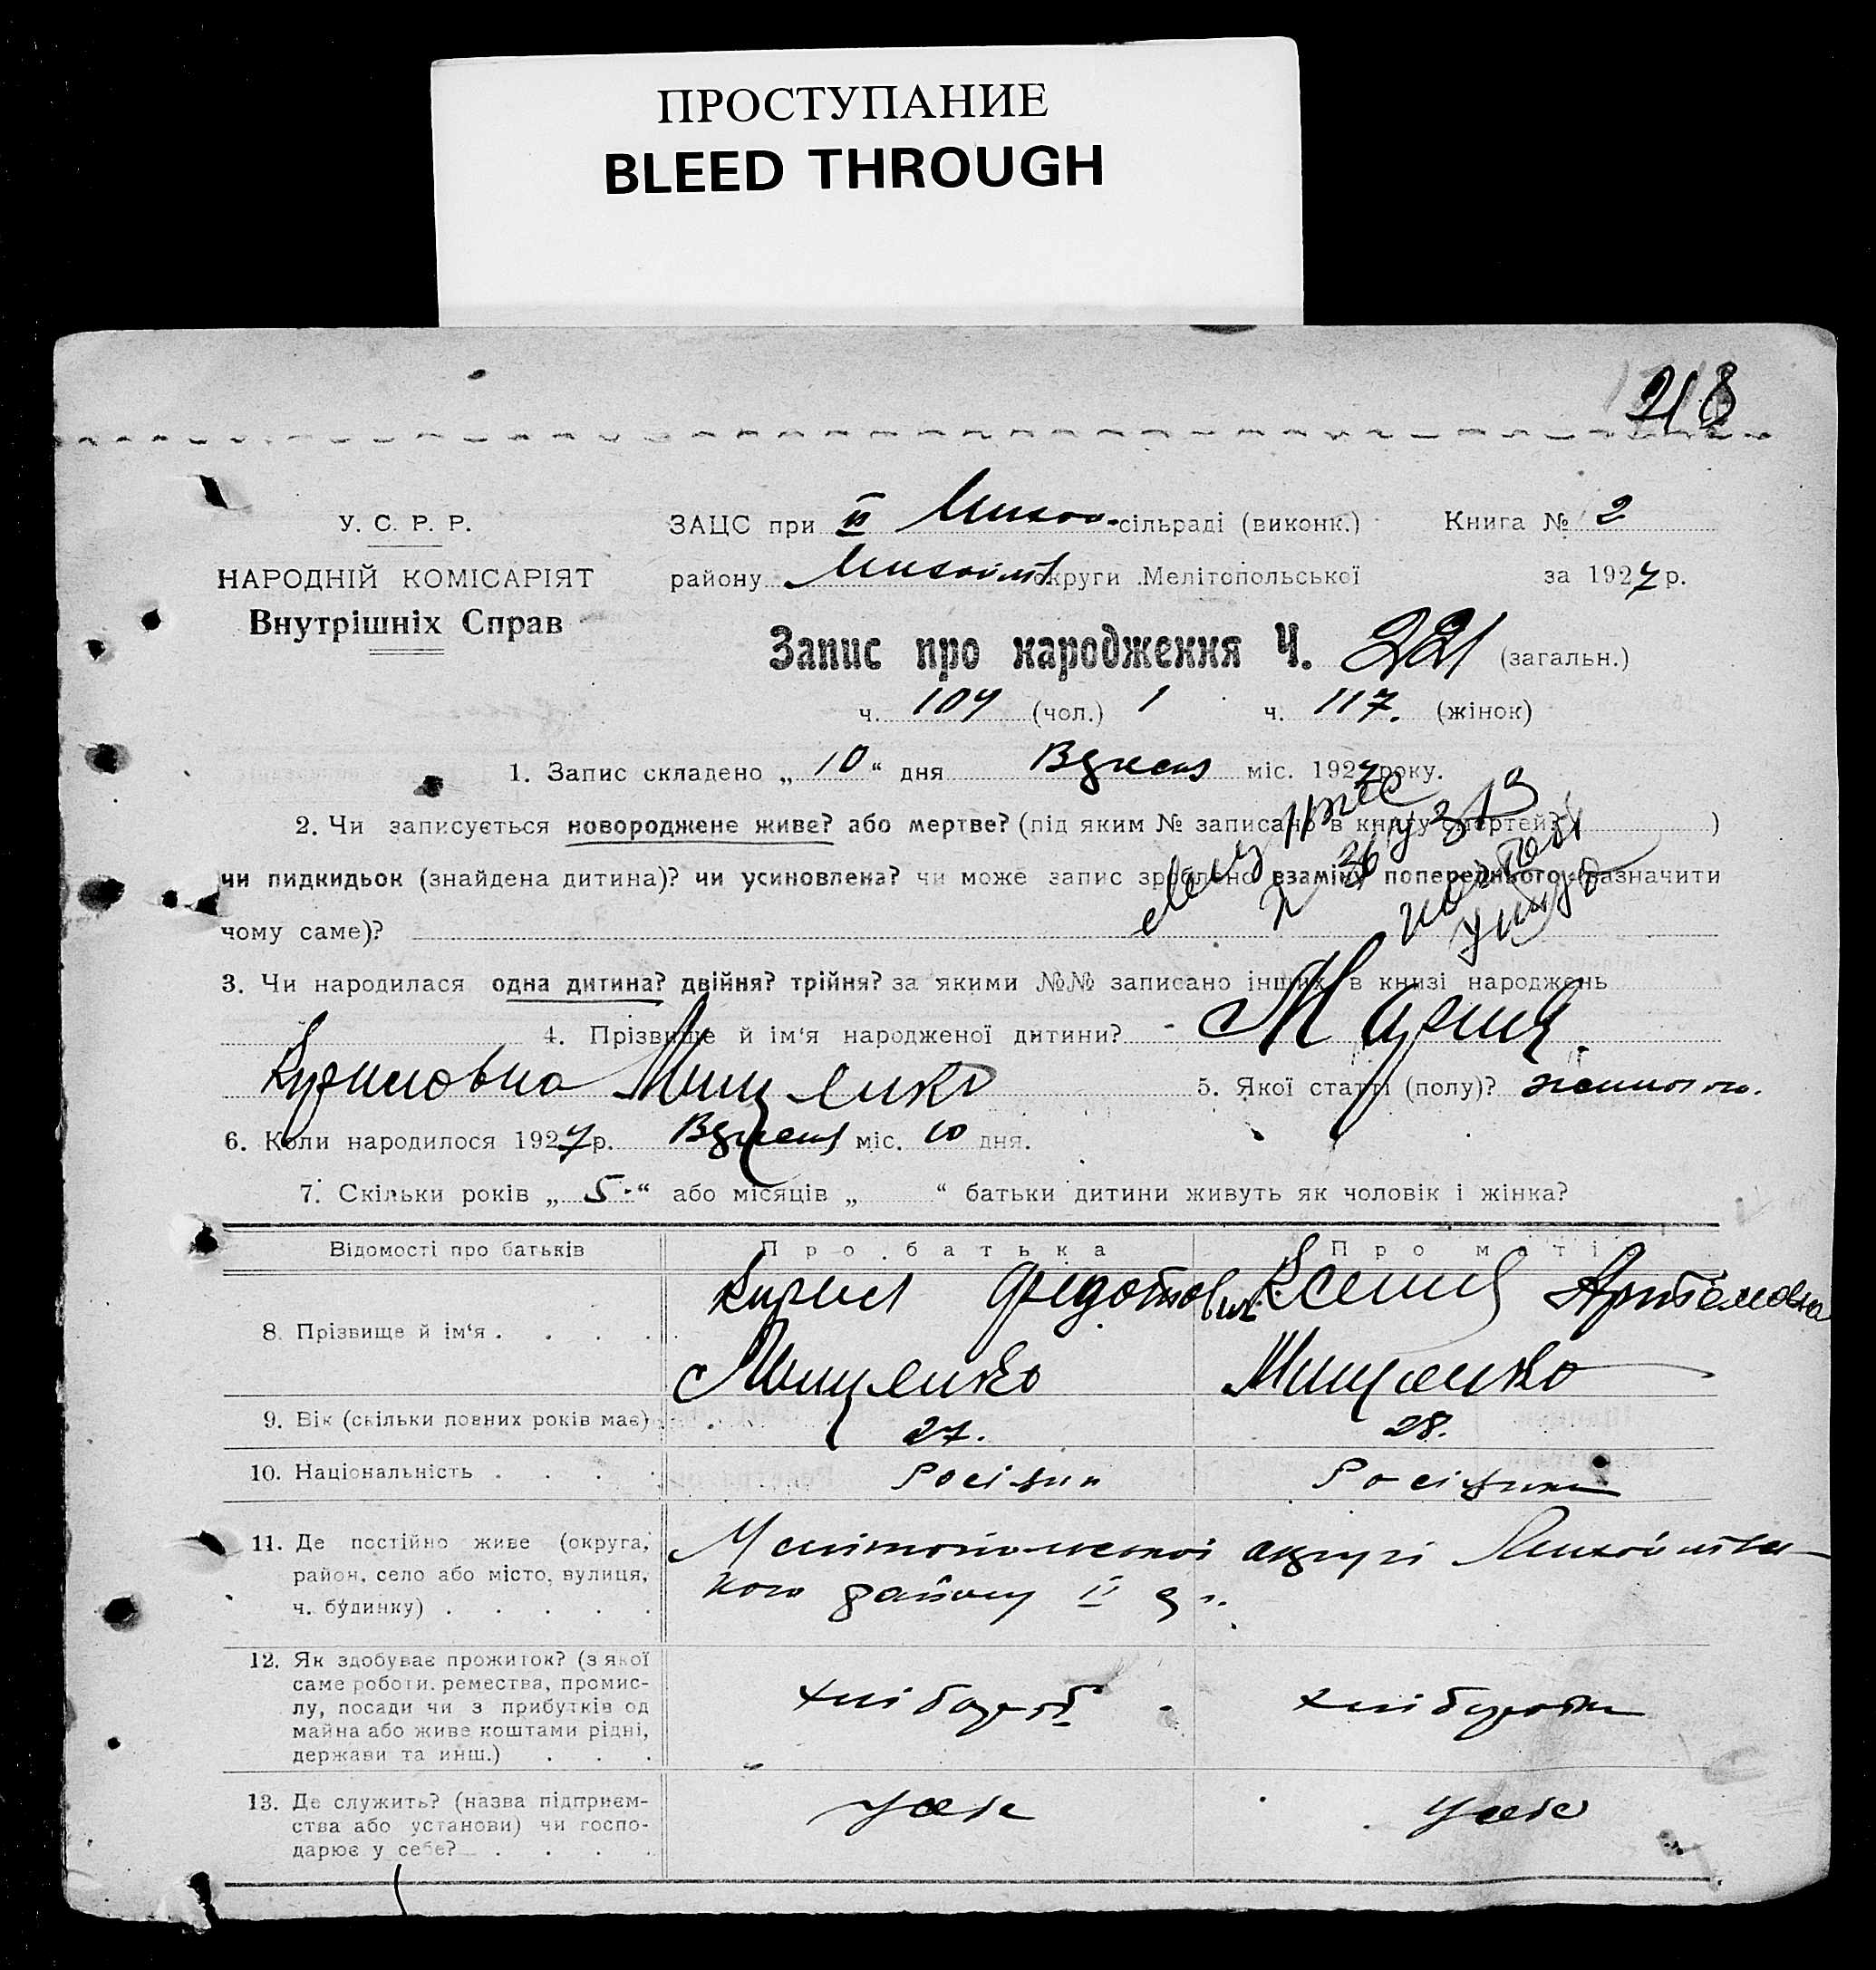 ПРОСТУПАНИЕ
BLEED THROUGH
218
У. С. Р. Р.
НАРОДНІЙ КОМІСАРІЯТ
Внутрішніх Справ
ЗАЦС при II Михай. сільраді (виконк.) Книга № 2
району округи Мелітопольської за 1927 р.
Запис про народження Ч. 221 (загальн.)
ч. 104 (чол.) 1 ч. 117. (жінок)
1. Запис складено „ 10 “ дня міс. 1927 року.
2. Чи записується новороджене живе? або мертве? (під яким № записано в книгу смертей? )
чи пидкидьок (знайдена дитина)? чи усиновлена? чи може запис зроблено взаміну попереднього (зазначити
чому саме)?
3. Чи народилася одна дитина? двійня? трійня? за якими №№ записано інших в книзі народжень
4. Прізвище й ім‘я народженої дитини? Мария.
Кириловна Мищенко 5. Якої статті (полу)?
6. Коли народилося 1927 р. міс. 10 дня.
7. Скільки років „ 5 “ або місяців „ “ батьки дитини живуть як чоловік і жінка?
Відомості про батьків Про батька Про матір
8. Прізвище й ім‘я . . . . Кирил Федотович Ксения Артемовна
Мищенко Мищенко
9. Вік (скільки повних років має) 27. 28.
10. Національність . . . . Росіянин Росіянка
11. Де постійно живе (округа, район, село або місто, вулиця, ч. будинку) . . . . . Мелітопольської округі Михайлівсь-
кого району II
12. Як здобуває прожиток? (з якої саме роботи, ремества, промис-лу, посади чи з прибутків од майна або живе коштами рідні, держави та инш.) . . . хлібороб хліборобка
13. Де служить? (назва підприєм-ства або установи) чи госпо-дарює у себе? . . . .